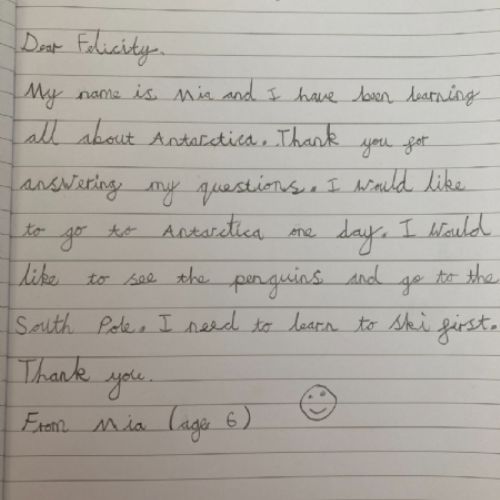 Dear Felicity.
My name is Mia and I have been learning
all about Antarctica. Thank you for
answering my questions. I would like
to go to Antarctica one day. I would
like to see the penguins and go to the
South Pole. I need to learn to ski first.
Thank you.
From Mia (age 6)